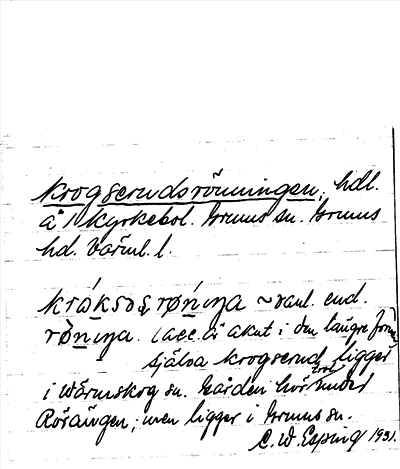 Krogserudsrönningen, hdl.
å 1 Kyrkebol. Brunns sn. Brunns
hd. Värml. l.
kråksɷs røńiŋa ~ vanl. end.
røńiŋa. (acc. är akut i den längre form
själva Krogserud ligger
i Värmskog sn. Gården hör under
Rörängen; men ligger i Brunns sn.
C. W. Esping 1931.